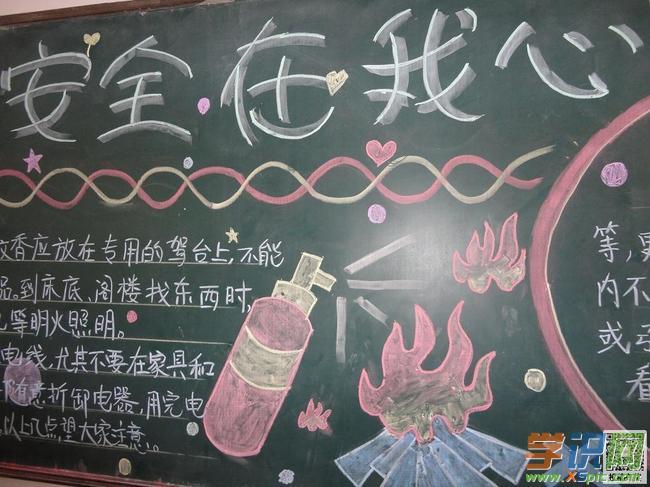 安全在我心
蚊香应放在专用的驾台上,不能
品,到床底、阁楼找东西时,
等明火照明。
电线,尤其不要在家具和
随意折卸电器,用完电
以上几点望大家注意。
等,
内不
或
看
学识网
www.XSpic.com